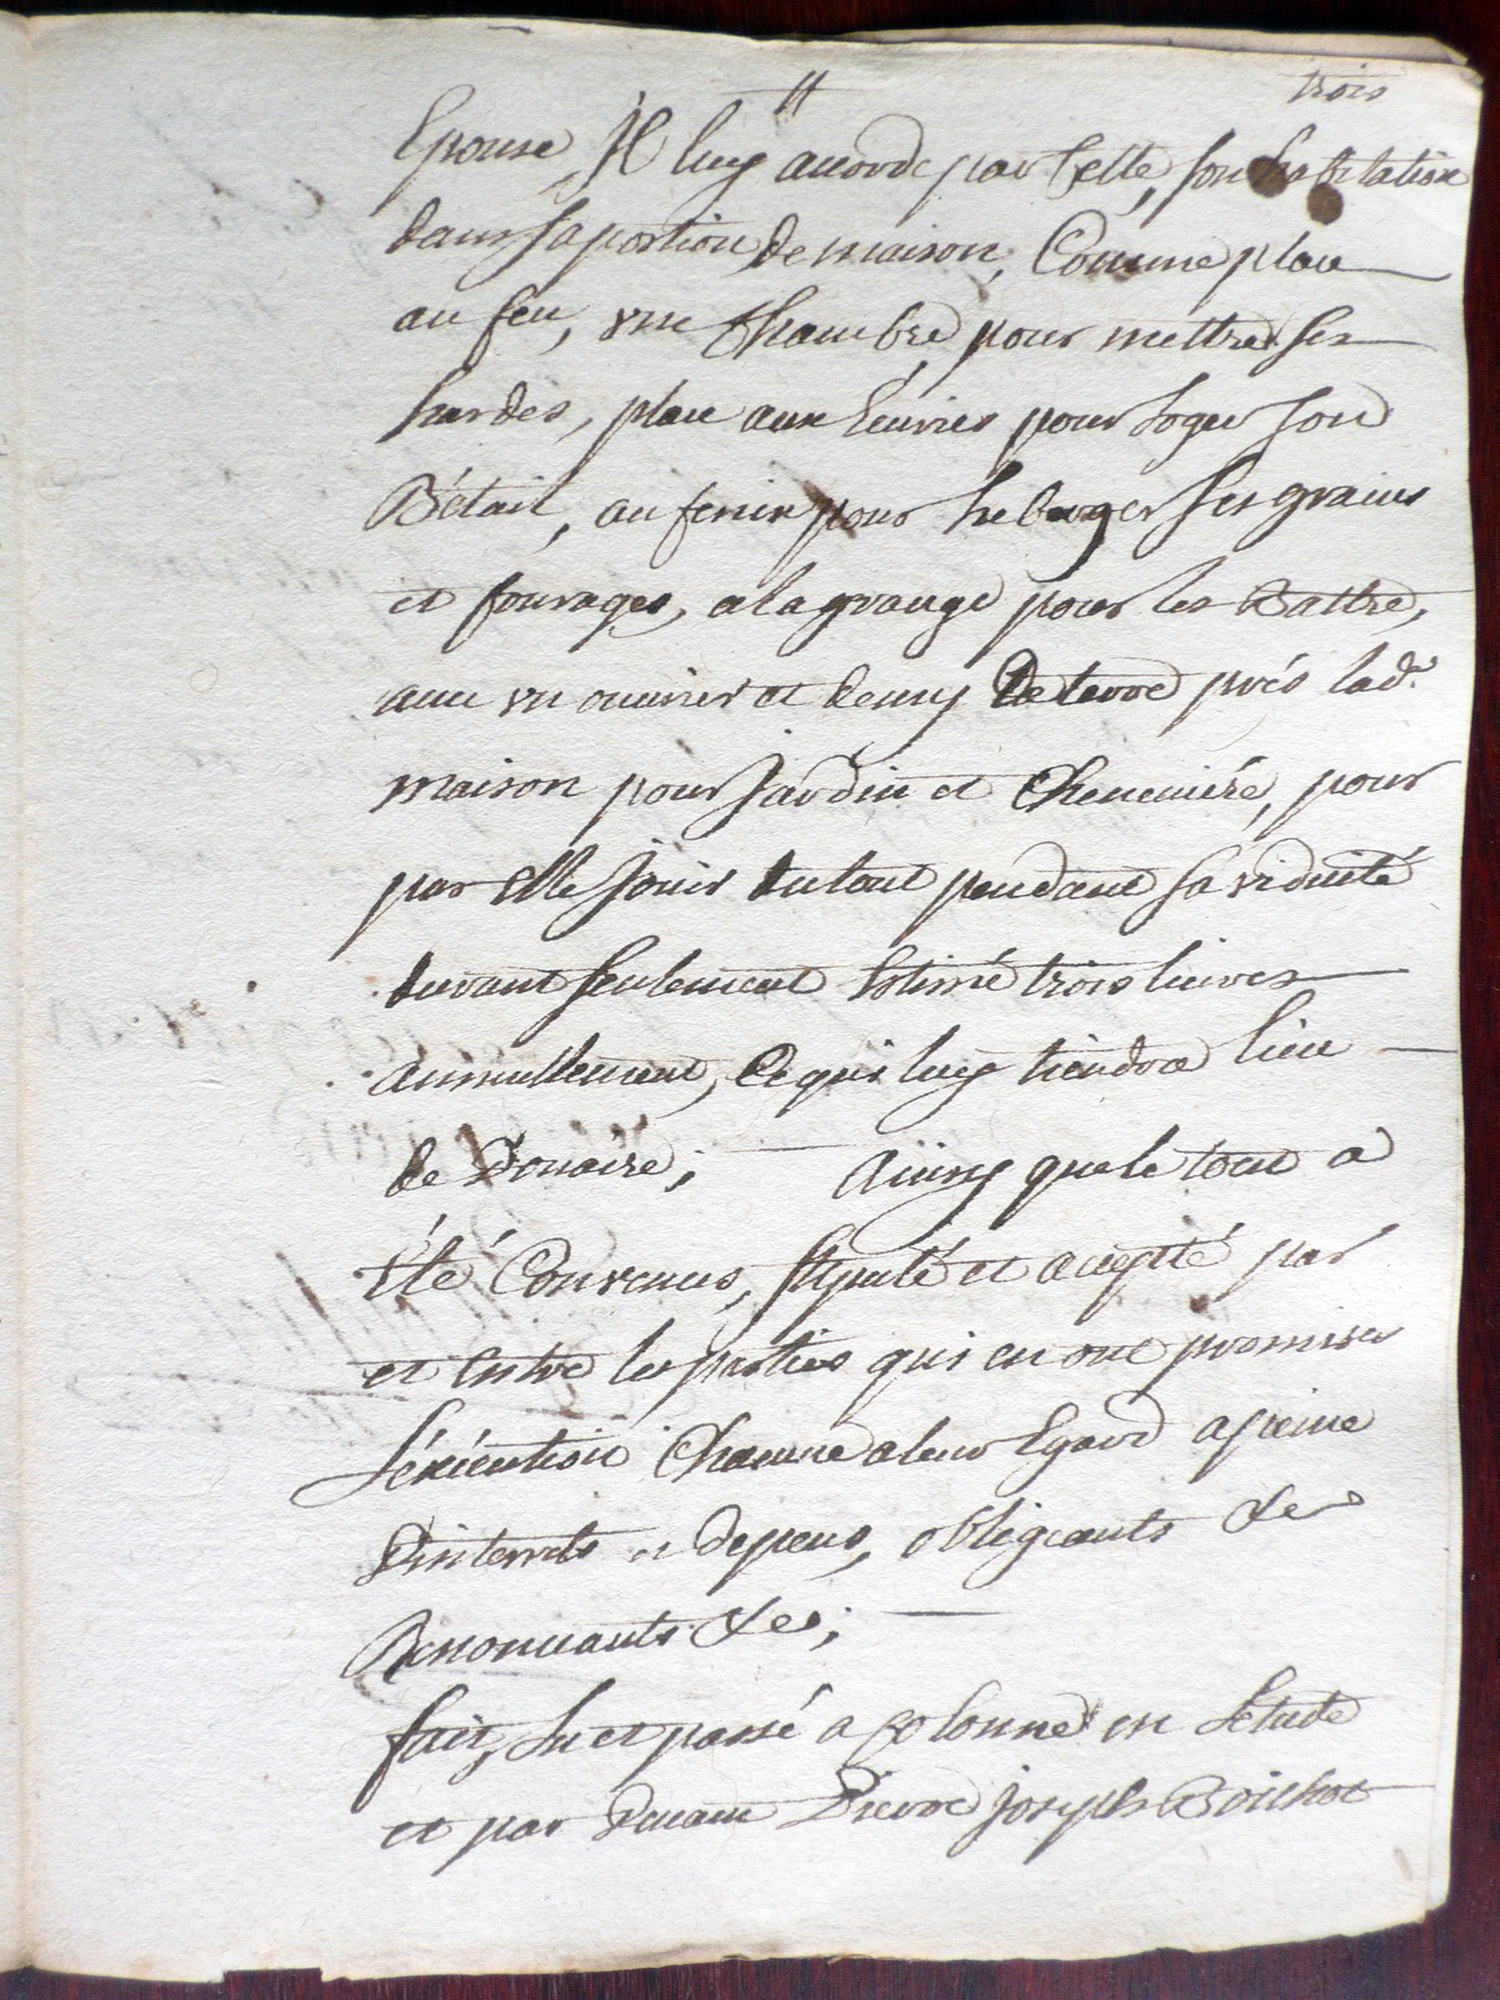 trois
Epouse, Il luy accorde par Cette, son habitation
dans sa portion de maison, Comme place
au feu, une Chambre pour mettre ses
hardes, place aux Ecuries pour Loger son
Bétail, au fenir pour heberger ses grains
et fourages, a la grange pour les Battre,
avec un ouvrier et demy De terre prés lad.e
maison pour Jardin et Cheneviére, pour
par Elle Jouir du tout pendant sa viduité
durant seulement Estimé trois Livres
annuellement, Ce qui luy tiendra lieu
de Douaire; Ainsy que le tout a
Eté Convenus, stipulé et accepté par
et Entre les parties qui en ont promises
L'éxécution Chacune a leur Egard a peine
D'interrets et depens, obligeants &c
Renonçants &c;
fait, Lu et passé a Colonne en L'etude
et par devant Pierre joseph Boichot